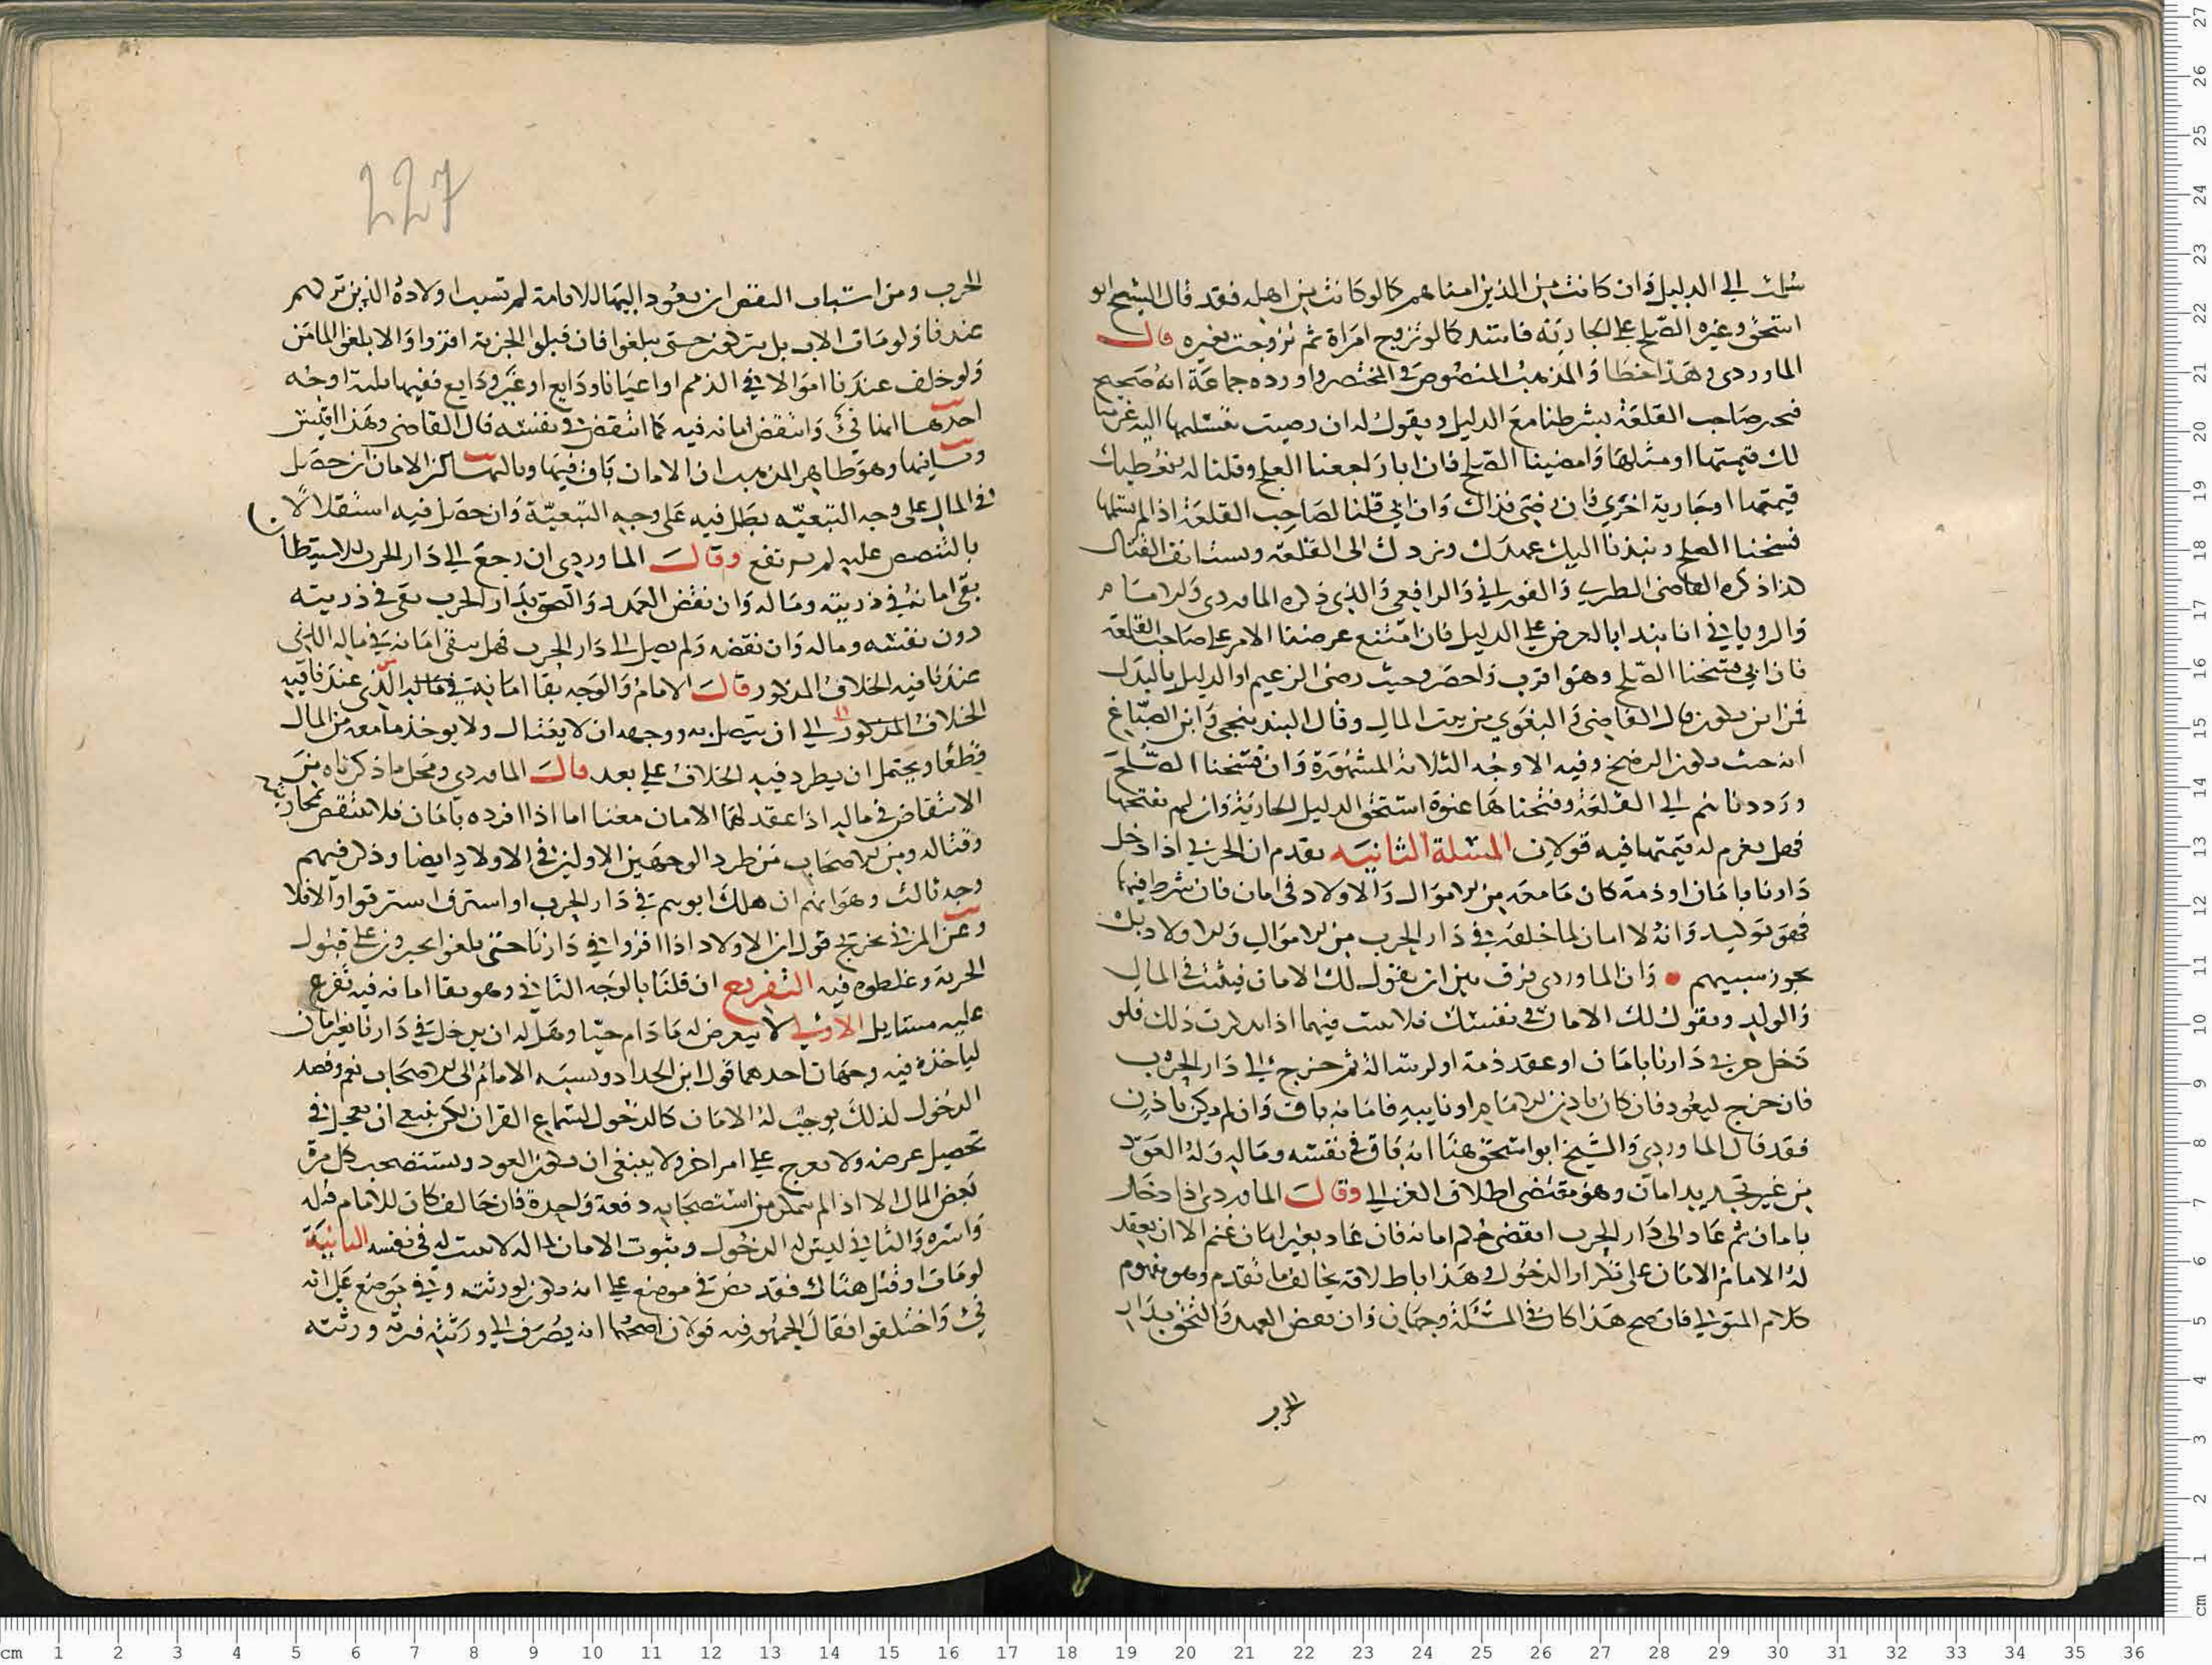 سلمت الى الدليل وان كانت من الذين امناهم كما لو كانت من اهله فقد قال الشيخ ابو
اسحق وغيره الصلح على الجارية فاسد كما لو تزوج امراة ثم تزوجت بغيره قال
الماوردي وهذا خطا والمذهب المنصوص في المختصر واورده جماعة انه صحيح
فيخير صاحب القلعة بشرطنا مع الدليل ويقول له ان رضيت بتسليمها اليه غرمنا
لك قيمتها او مثلها وامضينا الصلح فان ابا راجعنا العلج وقلنا له نعطيك
قيمتها او جارية اخرى فان رضى فذاك وان ابى قلنا لصاحب القلعة اذا لم تسلمها
فسخنا الصلح ونبذنا اليك عهدك ونردك الى القلعة ونستانف القتال
كذا ذكره القاضي الطبري والفوراني والرافعي والذي ذكره الماوردي والامام
والروياني انا نبدا بالعرض على الدليل فان امتنع عرضنا الامر على صاحب القلعة
فان ابى فسخنا الصلح وهو اقرب واحصر وحيث رضى الزعيم او الدليل بالبدل
فمن اين يكون قال القاضي والبغوي من بيت المال وقال البندنيجي وابن الصباغ
انه حيث يكون الرضخ وفيه الاوجه الثلاثة المشهورة وان فسخنا الصلح
ورددناهم الى القلعة وفتحناها عنوة استحق الدليل الجارية وان لم نفتحها
فهل يغرم له قيمتها فيه قولان المسلة الثانيه تقدم ان الحربي اذا دخل
دارنا بامان او ذمة كان ما معه من الاموال والاولاد في امان فان شرط فيها
فهو توكيد وانه لا امان لما خلفه في دار الحرب من الاموال والاولاد بل
يجوز سبيهم • وان الماوردي فرق بين ان يقول لك الامان فيثبت في المال
والولد ويقول لك الامان في نفسك فلا يثبت فيهما اذا تذكرت ذلك فلو
دخل حربي دارنا بامان او عقد ذمة او لرسالة ثم خرج الى دار الحرب
فان خرج ليعود فان كان باذن الامام او نايبه فامانه باق وان لم يكن باذن
فقد قال الماوردي والشيخ ابو اسحق هنا انه باق في نفسه وماله وله العود
من غير تجديد امان وهو مقتضى اطلاق الغزالي وقال الماوردي اذا دخل
بامان ثم عاد الى دار الحرب انقضى حكم امانه فان عاد بغير امان غنم الا ان يعقد
له الامام الامان على تكرار الدخول وهذا باطلاقه يخالف ما تقدم وهو مفهوم
كلام المتولي فان صح هذا كان في المسئلة وجهان وان نقض العهد والتحق بدار
الحرب
227
الحرب ومن اسباب النقض ان يعود اليها للاقامة لم تسب اولاده الذين تركهم
عندنا ولو مات الاب بل يتركون حتى يبلغوا فان قبلوا الجزية اقروا والا بلغوا المامن
ولو خلف عندنا اموالا في الذمم او اعيانا ودايع او غير ودايع ففيها ثلثة اوجه
احدها انها فيئ وانتقض امانه فيه كما انتقض في نفسه قال القاضي وهذا اقيس
وثانيها وهو ظاهر المذهب ان الامان باق فيها وثالثها كان الامان ان حصل
في المال على وجه التبعيه بطل فيه على وجه التبعيّة وان حصل فيه استقلالا
بالتنصيص عليه لم يرتفع وقال الماوردي ان رجع الى دار الحرب للاستيطان
بقى امانه في ذريته وماله وان نقض العهد والتحق بدار الحرب بقى في ذريته
دون نفسه وماله وان نقضه ولم يصل الى دار الحرب فهل يبقى امانه في ماله الذي
عندنا فيه الخلاف المذكور قال الامام والوجه بقا امانه في ماله الذي عندنا فيه
الخلاف المذكور الى ان يتصل به ووجهه ان لا يغتال ولا يوخذ ما معه من المال
قطعا ويحتمل ان يطرد فيه الخلاف على بعد قال الماوردي ومحل ما ذكرناه من
الانتقاض في ماله اذا عقد لهما الامان معنا اما اذا افرده بامان فلا ينتقض بمحاربته
وقتاله ومن الاصحاب من طرد الوجهين الاولين في الاولاد ايضا وذكر فيهم
وجه ثالث وهو انهم ان هلك ابوهم في دار الحرب او استرق استرقوا والا فلا
وعن المزني تخريج قول ان الاولاد اذا اقروا في دارنا حتى بلغوا يجبرون على قبول
الجزية وغلطوه فيه التفريع ان قلنا بالوجه الثاني وهو بقا امانه فيه تفرع
عليه مسايل الاولى لا يتعرض له ما دام حيا وهل له ان يدخل في دارنا بغير امان
لياخذه فيه وجهان احدهما قول ابن الحداد ونسبه الامام الى الاصحاب نعم وقصد
الدخول لذلك يوجب له الامان كالدخول لسماع القران لكن ينبغي ان يعجل في
تحصيل غرضه ولا يعرج على امر اخر ولا ينبغى ان يكون العود ويستصحب كل مرة
بعض المال الا اذا لم يتمكن من استصحابه دفعة واحدة فان خالف كان للامام قتله
واسره والثاني ليس له الدخول وثبوت الامان لماله لا يثبت له في نفسه الثانية
لو مات او قتل هناك فقد نص في موضع على انه يكون لورثته وفي موضع على انه
فيئ واختلفوا فقال الجمهور فيه قولان اصحهما انه يصرف الى ورثته فبرقه ورثته